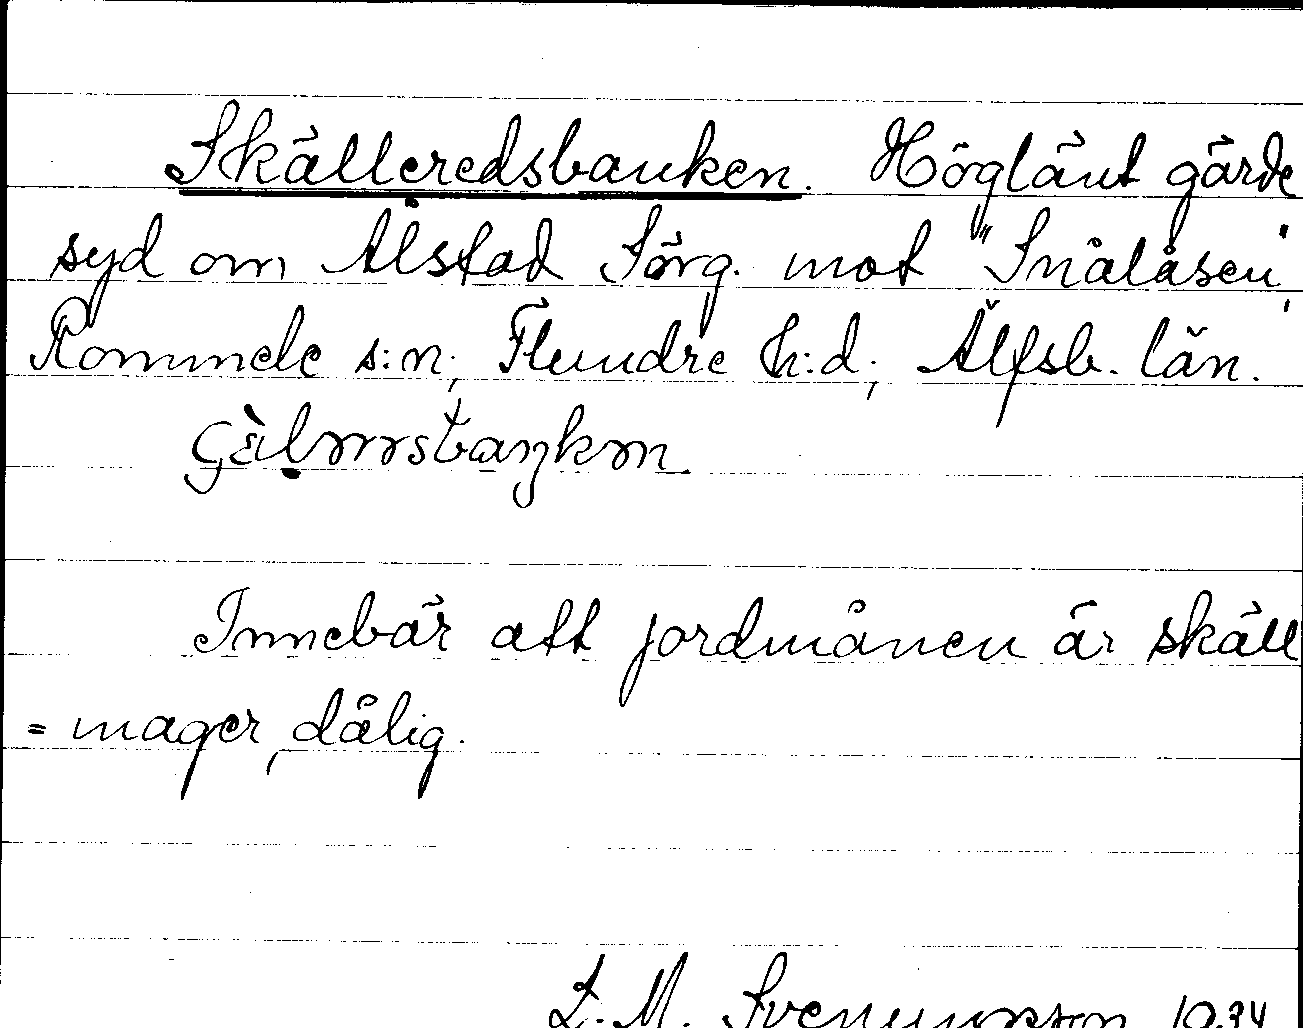 Skälleredsbanken. Höglänt gärde
syd om Ålstad Sörg. mot "Snålåsen",
Rommele s:n, Flundre h:d, Älfsb. län.
Innebär att jordmånen är skäll
= mager, dålig.
L. M. Svenungsson 1934